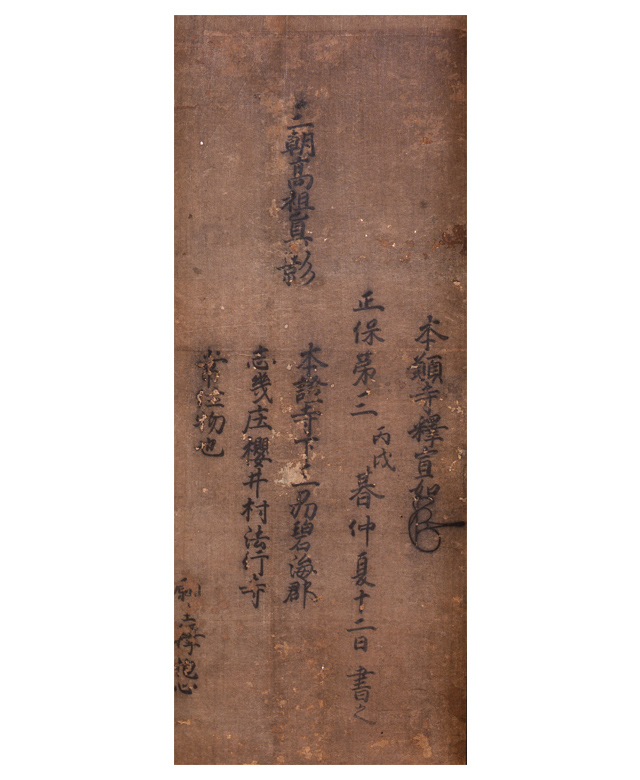 本願寺釋宣如
正保第三丙戌暮仲夏十二日書之
三朝高祖真影
本證寺下三州碧海郡
志幾庄櫻井村法行寺
常住物也